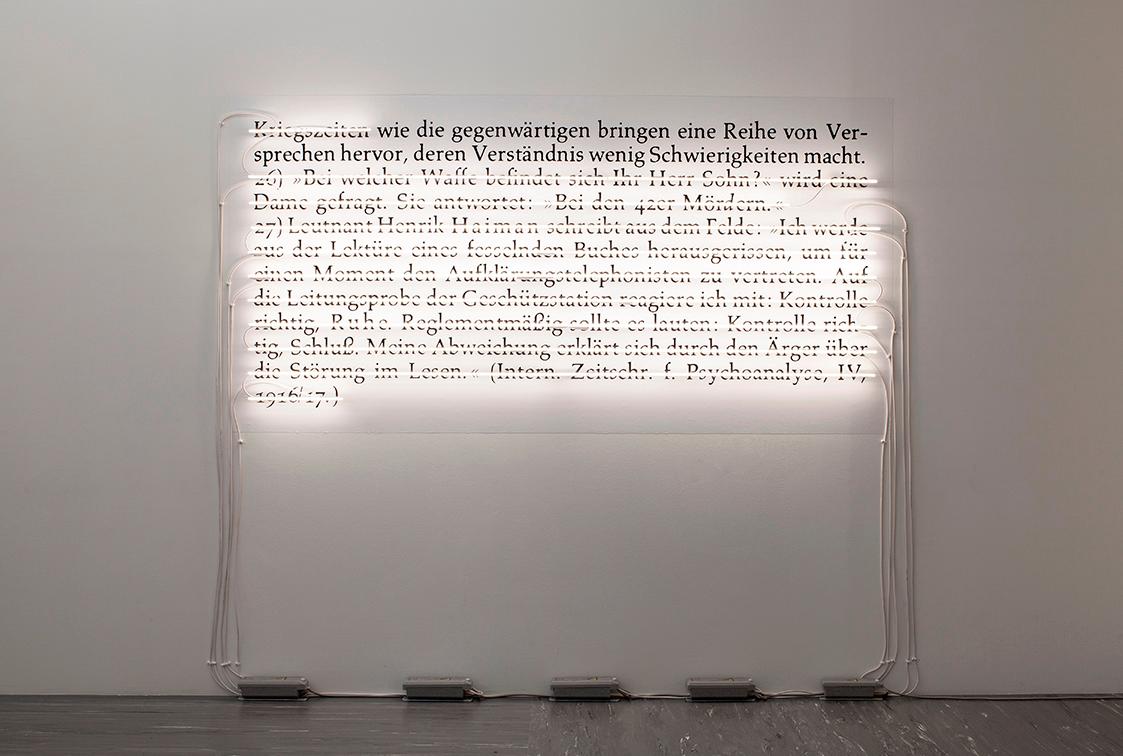 Kriegszeiten wie die gegenwärtigen bringen eine Reihe von Ver-
sprechen hervor, deren Verständnis wenig Schwierigkeiten macht.
26) »Bei welcher Waffe befindet sich Ihr Herr Sohn?« wird eine
Dame gefragt. Sie antwortet: »Bei den 42er Mördern.«
27) Leutnant Henrik Haiman schreibt aus dem Felde: »Ich werde
aus der Lektüre eines fesselnden Buches herausgerissen, um für
einen Moment den Aufklärungstelephonisten zu vertreten. Auf
die Leitungsprobe der Geschützstation reagiere ich mit: Kontrolle
richtig, Ruhe. Reglementmäßig sollte es lauten: Kontrolle rich-
tig, Schluß. Meine Abweichung erklärt sich durch den Ärger über
die Störung im Lesen.« (Intern. Zeitschr. f. Psychoanalyse, IV,
1916/17.)